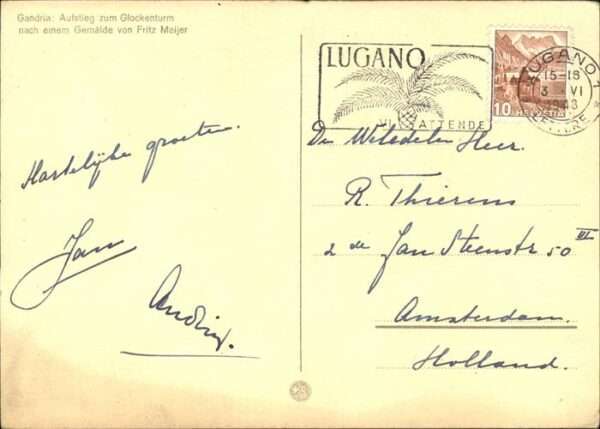 Gandria: Aufstieg zum Glockenturm
nach einem Gemälde von Fritz Meijer
LUGANO
VI ATTENDE
LUGANO 1
15-18
3 VI
LETTERE
10 HELVETIA
Hartelijke groeten.
Jan
Den Weledelen Heer.
R. Thierens
2 de Jan Steenstr 50 III
Amsterdam.
Holland.